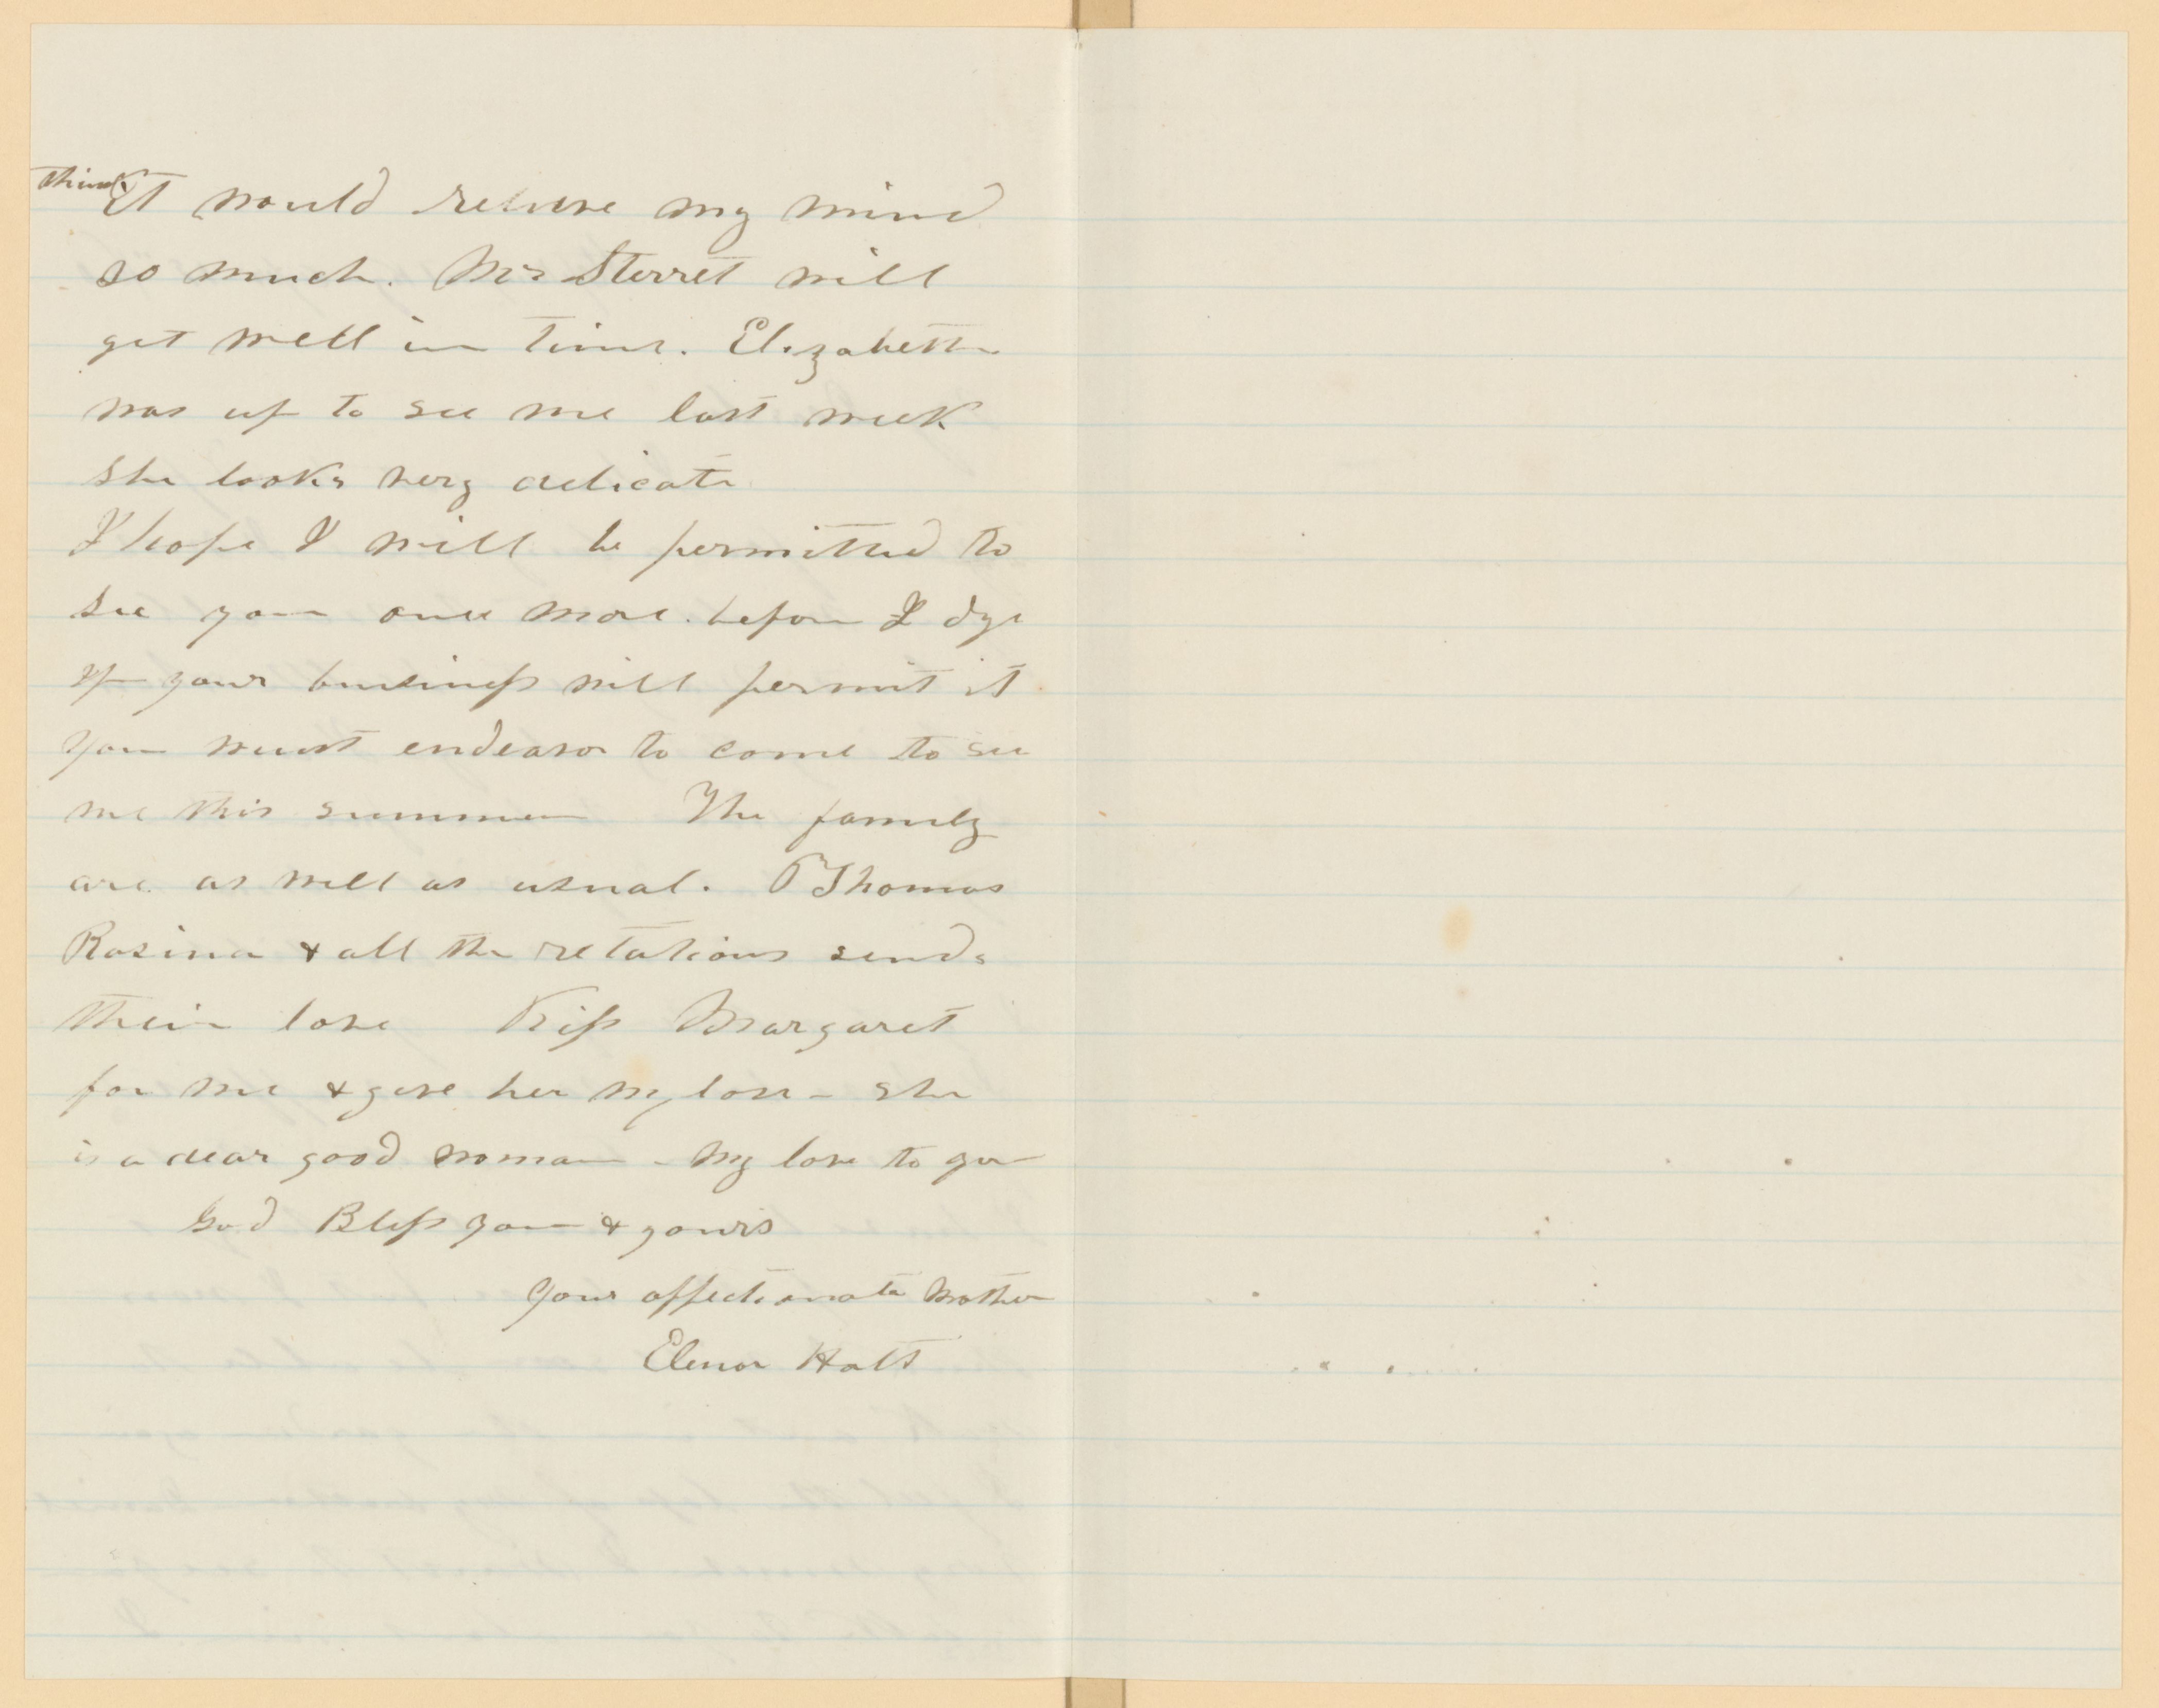 think it would relieve my mind
so much. Mrs Sterret will
get well in time. Elizabeth
was up to see me last week
she looks very delicate
I hope I will be permitted to
see you once more before I dye
if your business will permit it
you must endeavor to come to see
me this summer The family
are as well as usual. Thomas
Rosina & all the relations sends
their love Kiss Margaret
for me & give her my love - she
is a dear good woman - my love to you
God Bless you & yours
your affectionate Mother
Elenor Hatt